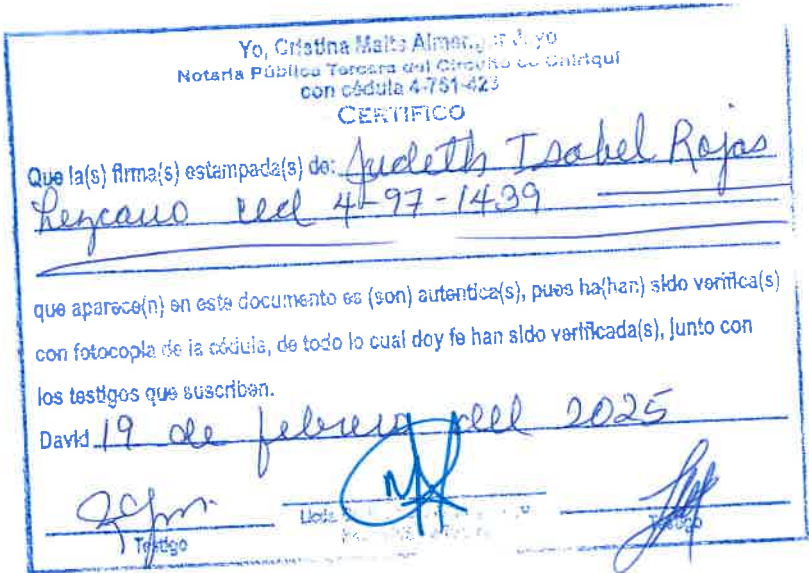 Yo, Cristina Maite Almengor
Notaria Pública Tercera del Circuito de Chiriquí
con cédula 4-761-423
CERTIFICO
Que la(s) firma(s) estampada(s) de: Judeth Isabel Rojas
Lezcano ced 4-97-1439
que aparece(n) en este documento es (son) autentica(s), pues ha(han) sido verifica(s)
con fotocopia de la cédula, de todo lo cual doy fe han sido verificada(s), junto con
los testigos que suscriben.
David 19 de febrero del 2025
Testigo
Testigo